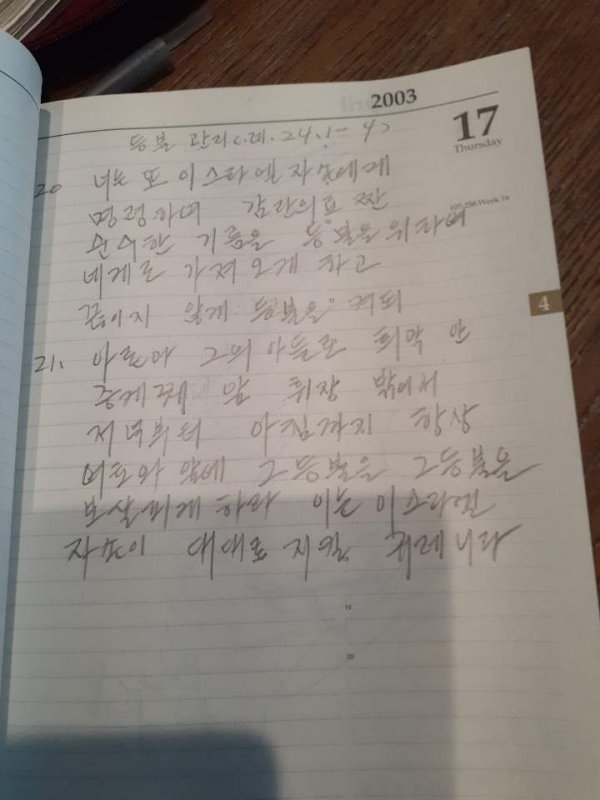 2003
17
Thursday
107-258 Week 16
4
등불 관리<레.24.1-4>
20 너는 또 이스라엘 자손에게
명령하여 감람으로 짠
순수한 기름을 등불을 위하여
네게로 가져오게 하고
끊이지 않게 등불을 켜되
21. 아론과 그의 아들들로 회막 안
증거궤 앞 휘장 밖에서
저녁부터 아침까지 항상
여호와 앞에 그 등불을 그 등불을
보살피게 하라 이는 이스라엘
자손이 대대로 지킬 규례니라
19
20